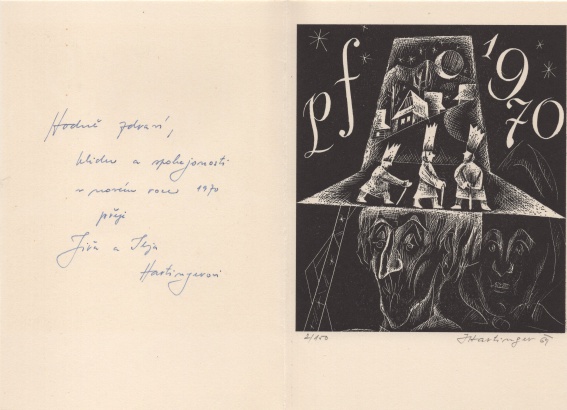 Hodně zdraví,
klidu a spokojenosti
v novém roce 1970
přejí
Jiří a
Hastingerovi
pf 1970
2/150
JHastinger 69